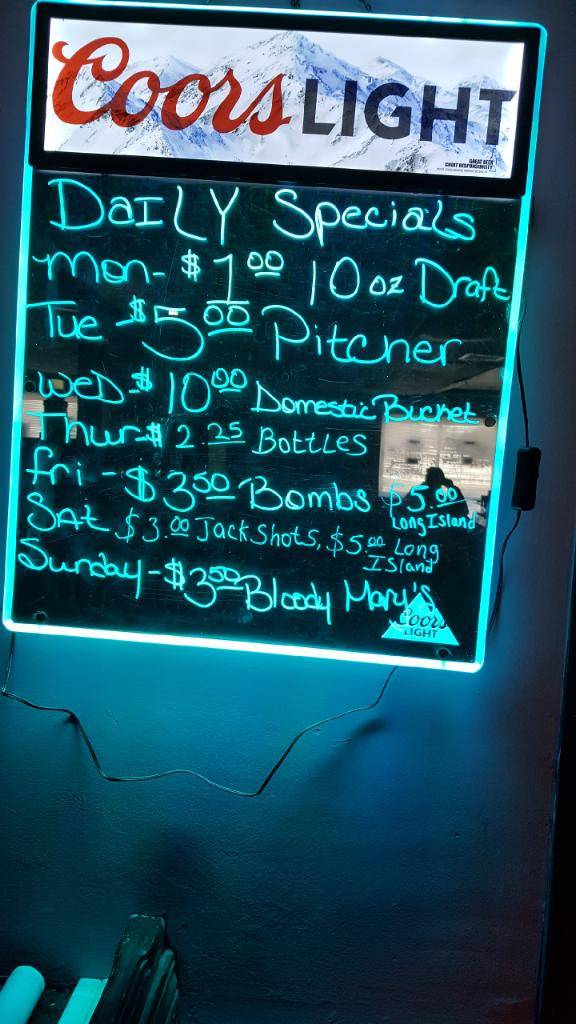 Coors LIGHT
GREAT BEER
GREAT RESPONSIBILITY
DaILY Specials
Mon- $1.00 10 oz Draft
Tue $5.00 Pitcher
WED $10.00 Domestic Bucket
Thur-$2.25 BOTTLES
fri - $3.50 Bombs $5.00
Long Island
SAt $3.00 Jack Shots, $5.00 Long
ISland
Sunday-$3.50 Bloody Mary's
Coors
LIGHT